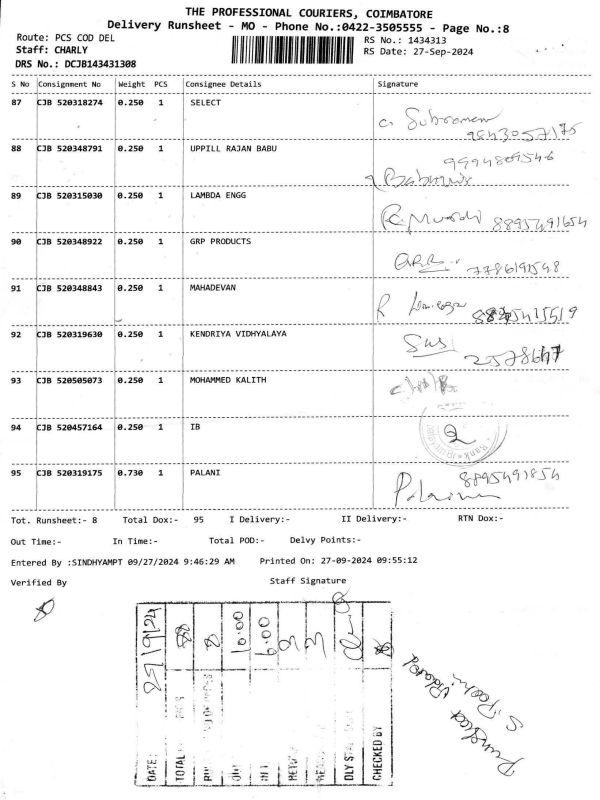 THE PROFESSIONAL COURIERS, COIMBATORE
Delivery Runsheet - MO - Phone No.:0422-3505555 - Page No.:8
Route: PCS COD DEL
RS No.: 1434313
Staff: CHARLY
RS Date: 27-Sep-2024
DRS No.: DCJB143431308
S No Consignment No Weight PCS Consignee Details Signature
87 CJB 520318274 0.250 1 SELECT
9843057175
88 CJB 520348791 0.250 1 UPPILL RAJAN BABU
89 CJB 520315030 0.250 1 LAMBDA ENGG
8895491654
90 CJB 520348922 0.250 1 GRP PRODUCTS
91 CJB 520348843 0.250 1 MAHADEVAN
92 CJB 520319630 0.250 1 KENDRIYA VIDHYALAYA
93 CJB 520505073 0.250 1 MOHAMMED KALITH
94 CJB 520457164 0.250 1 IB
95 CJB 520319175 0.730 1 PALANI
8895491854
Tot. Runsheet:- 8 Total Dox:- 95 I Delivery:- II Delivery:- RTN Dox:-
Out Time:- In Time:- Total POD:- Delvy Points:-
Entered By :SINDHYAMPT 09/27/2024 9:46:29 AM Printed On: 27-09-2024 09:55:12
Verified By Staff Signature
DATE:
TOTAL
8
10.00
6.00
CHECKED BY